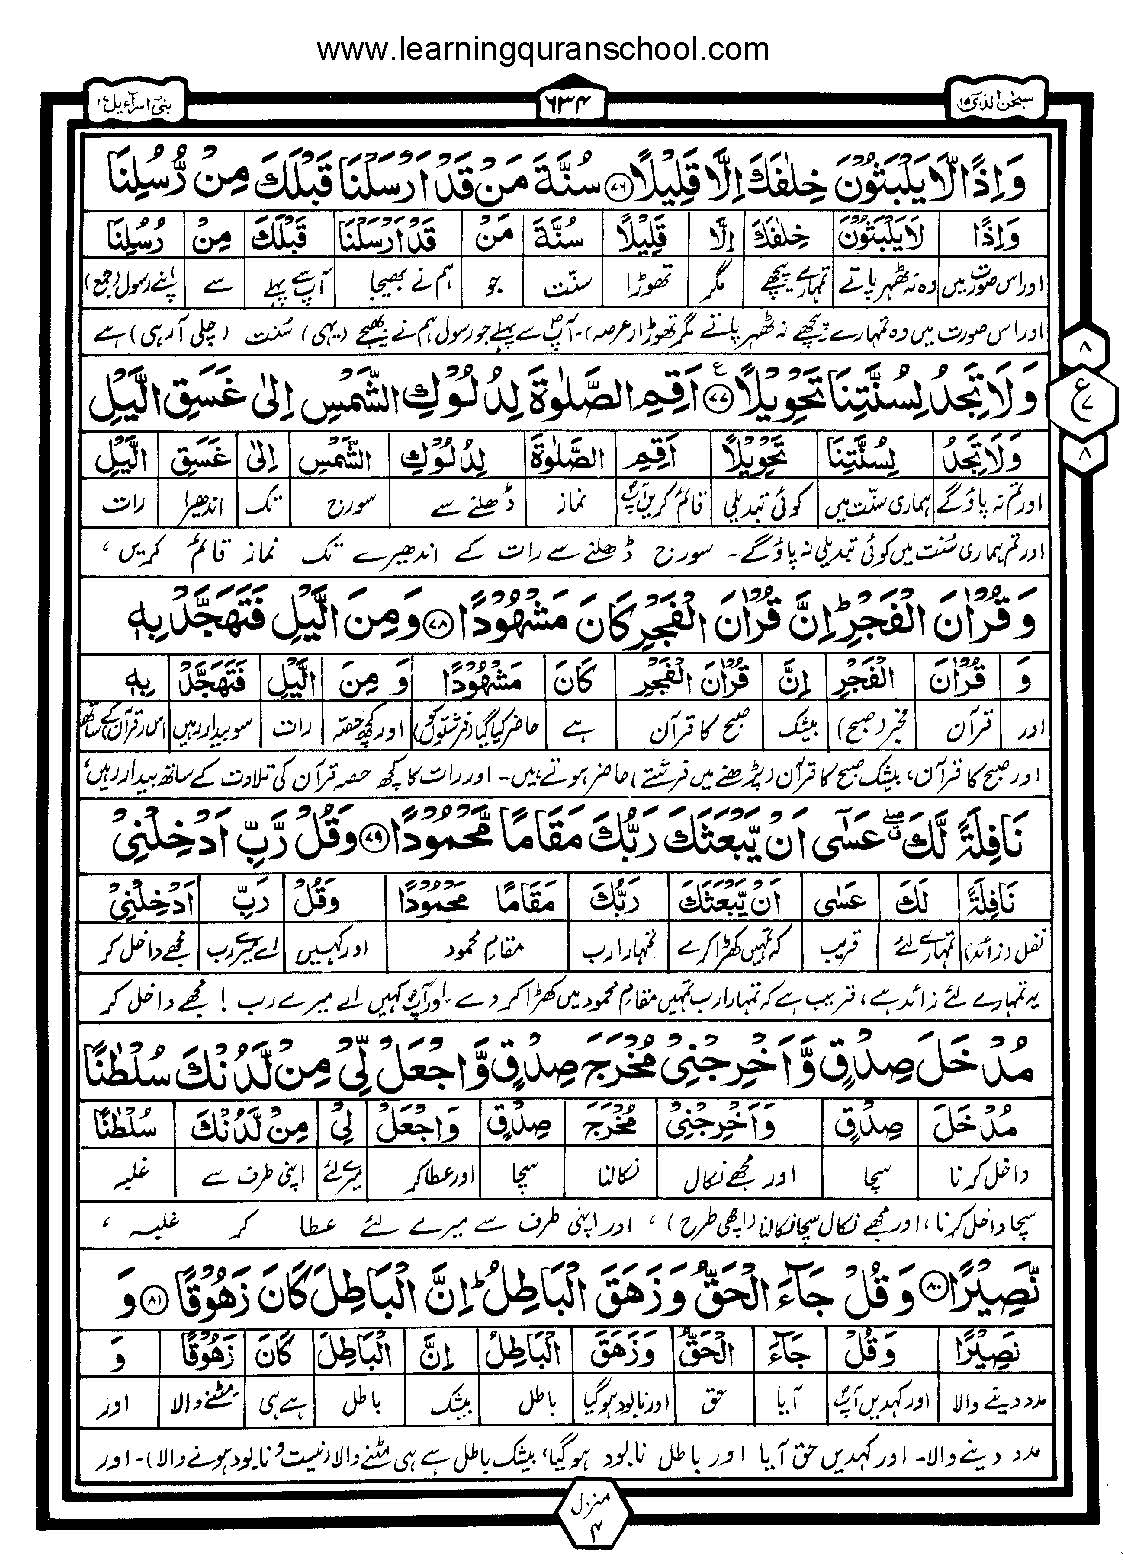 www.learningquranschool.com
سبحٰن الذی ۱۵
۶۳۴
بنی اسرآءیل ۱۷
وَاِذًا لَّا یَلْبَثُوْنَ خِلٰفَكَ اِلَّا قَلِیْلًا ﴿۷۶﴾ سُنَّةَ مَنْ قَدْ اَرْسَلْنَا قَبْلَكَ مِنْ رُّسُلِنَا
وَاِذًا لَا یَلْبَثُوْنَ خِلٰفَكَ اِلَّا قَلِیْلًا سُنَّةَ مَنْ قَدْ اَرْسَلْنَا قَبْلَكَ مِنْ رُسُلِنَا
اور اس صورت میں وہ نہ ٹھہر پاتے تمہارے پیچھے مگر تھوڑا سنّت جو ہم نے بھیجا آپ سے پہلے سے اپنے رسول (جمع)
اور اس صورت میں وہ تمہارے پیچھے نہ ٹھہر پاتے مگر تھوڑا (عرصہ)۔ آپؐ سے پہلے جو رسول ہم نے بھیجے (یہی) سُنت (چلی آ رہی) ہے
وَلَا تَجِدُ لِسُنَّتِنَا تَحْوِیْلًا ﴿۷۷﴾ ع اَقِمِ الصَّلٰوةَ لِدُلُوْكِ الشَّمْسِ اِلٰی غَسَقِ الَّیْلِ
۸
ع ۷
۸
وَلَا تَجِدُ لِسُنَّتِنَا تَحْوِیْلًا اَقِمِ الصَّلٰوةَ لِدُلُوْكِ الشَّمْسِ اِلٰی غَسَقِ الَّیْلِ
اور تم نہ پاؤ گے ہماری سنّت میں کوئی تبدیلی قائم کریں آپؐ نماز ڈھلنے سے سورج تک اندھیرا رات
اور تم ہماری سُنت میں کوئی تبدیلی نہ پاؤ گے۔ سورج ڈھلنے سے رات کے اندھیرے تک نماز قائم کریں،
وَقُرْاٰنَ الْفَجْرِ ؕ اِنَّ قُرْاٰنَ الْفَجْرِ كَانَ مَشْهُوْدًا ﴿۷۸﴾ وَمِنَ الَّیْلِ فَتَهَجَّدْ بِهٖ
وَ قُرْاٰنَ الْفَجْرِ اِنَّ قُرْاٰنَ الْفَجْرِ كَانَ مَشْهُوْدًا وَ مِنَ الَّیْلِ فَتَهَجَّدْ بِهٖ
اور قرآن فجر (صبح) بیشک صبح کا قرآن ہے حاضر کیا گیا (فرشتوں کو) اور کچھ حصہ رات سو بیدار رہیں اس (قرآن کے ساتھ)
اور صبح کا قرآن، بیشک صبح کا قرآن (پڑھنے میں فرشتے) حاضر ہوتے ہیں۔ اور رات کا کچھ حصہ قرآن کی تلاوت کے ساتھ بیدار رہیں،
نَافِلَةً لَّكَ ۖ عَسٰۤی اَنْ یَّبْعَثَكَ رَبُّكَ مَقَامًا مَّحْمُوْدًا ﴿۷۹﴾ وَقُلْ رَّبِّ اَدْخِلْنِیْ
نَافِلَةً لَكَ عَسٰی اَنْ یَّبْعَثَكَ رَبُّكَ مَقَامًا مَحْمُوْدًا وَقُلْ رَبِّ اَدْخِلْنِیْ
نفل (زائد) تمہارے لئے قریب کہ تمہیں کھڑا کرے تمہارا رب مقامِ محمود اور کہیں اے میرے رب مجھے داخل کر
یہ تمہارے لئے زائد ہے، قریب ہے کہ تمہارا رب تمہیں مقامِ محمود میں کھڑا کر دے۔ اور آپؐ کہیں اے میرے رب ! مجھے داخل کر
مُدْخَلَ صِدْقٍ وَّاَخْرِجْنِیْ مُخْرَجَ صِدْقٍ وَّاجْعَلْ لِّیْ مِنْ لَّدُنْكَ سُلْطٰنًا
مُدْخَلَ صِدْقٍ وَاَخْرِجْنِیْ مُخْرَجَ صِدْقٍ وَاجْعَلْ لِیْ مِنْ لَّدُنْكَ سُلْطٰنًا
داخل کرنا سچا اور مجھے نکال نکالنا سچا اور عطا کر میرے لئے اپنی طرف سے غلبہ
سچا داخل کرنا، اور مجھے نکال سچا نکالنا (اچھی طرح)، اور اپنی طرف سے میرے لئے عطا کر غلبہ،
نَّصِیْرًا ﴿۸۰﴾ وَقُلْ جَآءَ الْحَقُّ وَزَهَقَ الْبَاطِلُ ؕ اِنَّ الْبَاطِلَ كَانَ زَهُوْقًا ﴿۸۱﴾ وَ
نَصِیْرًا وَقُلْ جَآءَ الْحَقُّ وَزَهَقَ الْبَاطِلُ اِنَّ الْبَاطِلَ كَانَ زَهُوْقًا وَ
مدد دینے والا اور کہدیں آپؐ آیا حق اور نابود ہو گیا باطل بیشک باطل ہے ہی مٹنے والا اور
مدد دینے والا۔ اور کہدیں حق آیا اور باطل نابود ہو گیا، بیشک باطل ہے ہی مٹنے والا (نیست و نابود ہونے والا)۔ اور
منزل ۴